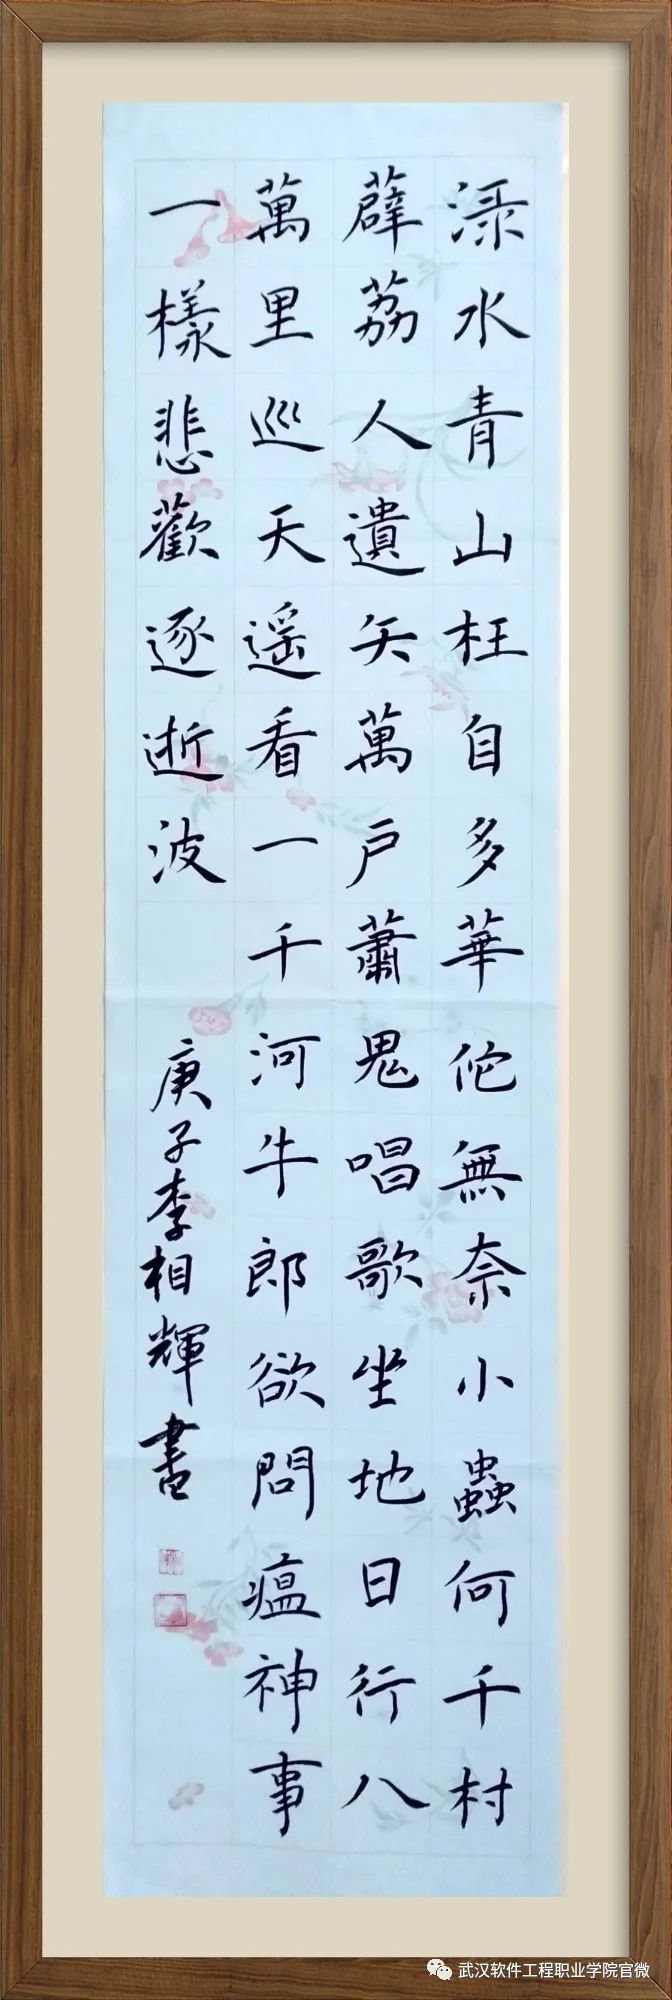 渌水青山枉自多華佗無奈小蟲何千村
薜茘人遺矢萬户蕭鬼唱歌坐地日行八
萬里巡天遥看一千河牛郎欲問瘟神事
一樣悲歡逐逝波
庚子李相輝書
武汉软件工程职业学院官微